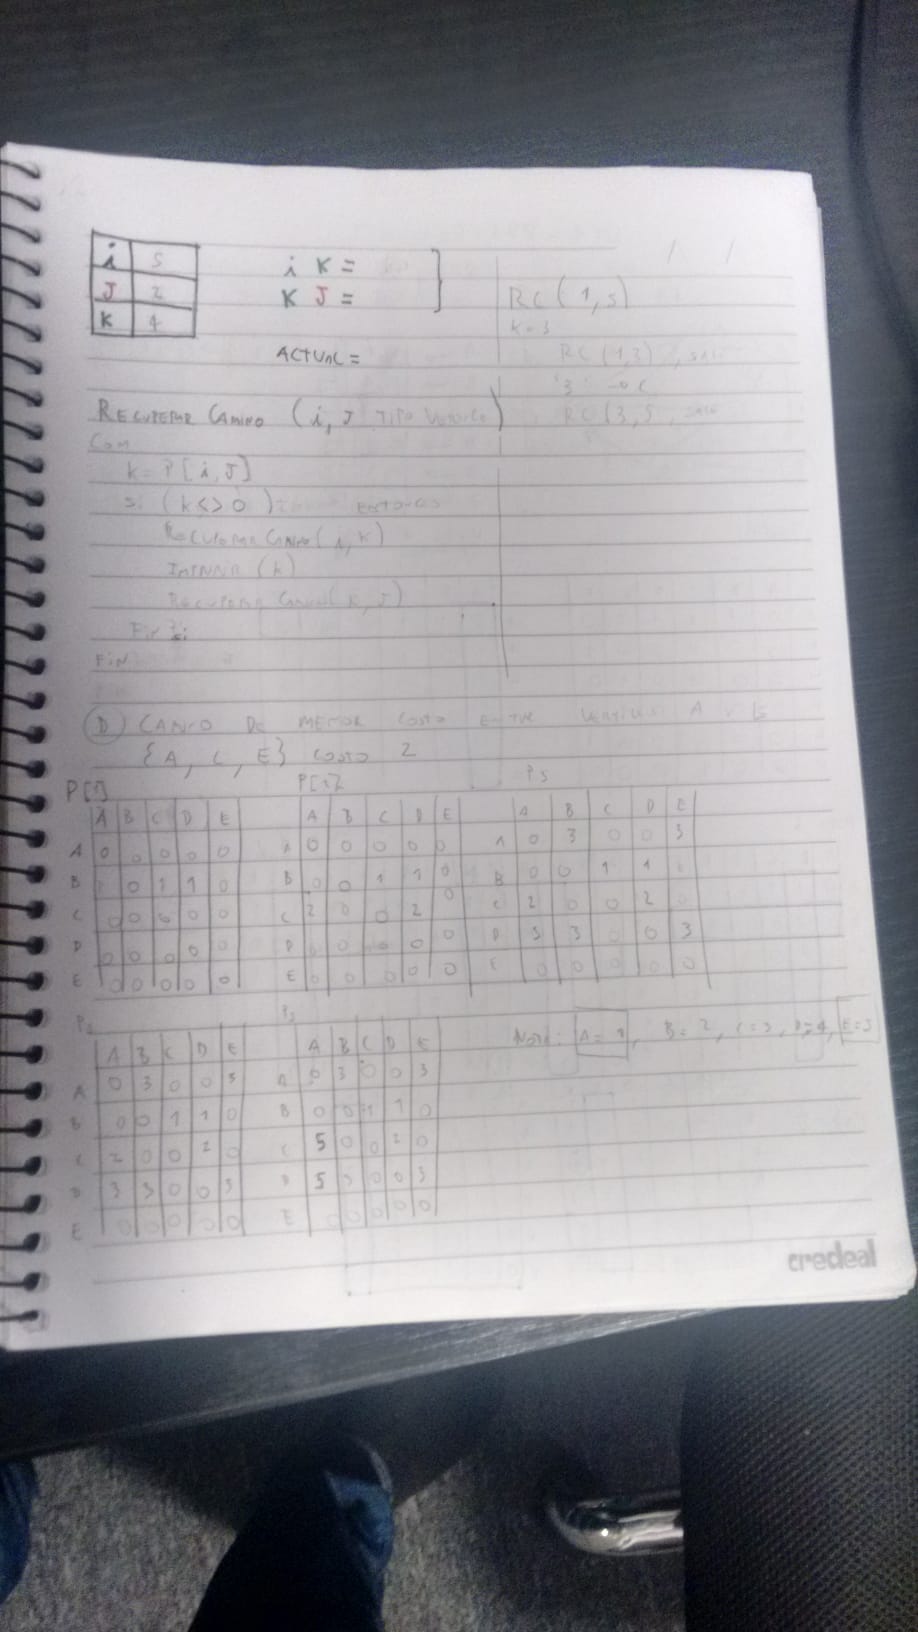 i 5
J 2
K 4
i K =
K J =
ACTUAL =
RC ( 1, 5)
K = 3
RC (1,3)
RC (3,5
RECUPERAR CAMINO (i, J TIPO
COM
K = P [i, J]
Si (K <> 0 ) ENTONCES
RECUPERAR CAMINO ( i, K)
IMPRIMIR (K)
RECUPERAR CAMINO( K, J)
FIN si
FIN
D CAMINO DE MENOR COSTO ENTRE VERTICES A Y E
{A, C, E} COSTO 2
P[1]
A B C D E
A 0 0 0 0 0
B 0 1 1 0
C 0 0 0 0 0
D 0 0 0 0 0
E 0 0 0 0 0
A B C D E
A 0 0 0 0 0
B 0 0 1 1 0
C 2 0 0 2 0
D 0 0 0 0 0
E 0 0 0 0 0
A B C D E
A 0 3 0 0 3
B 0 0 1 1
C 2 0 0 2 0
D 3 3 0 0 3
E 0 0 0 0 0
A B C D E
A 0 3 0 0 3
B 0 0 1 1 0
C 2 0 0 2 0
D 3 3 0 0 3
E 0 0 0 0 0
A B C D E
A 0 3 0 0 3
B 0 0 1 1 0
C 5 0 0 2 0
D 5 3 0 0 3
E 0 0 0 0 0
NOTA: A = 1, B = 2, C = 3, D = 4, E = 5
credeal